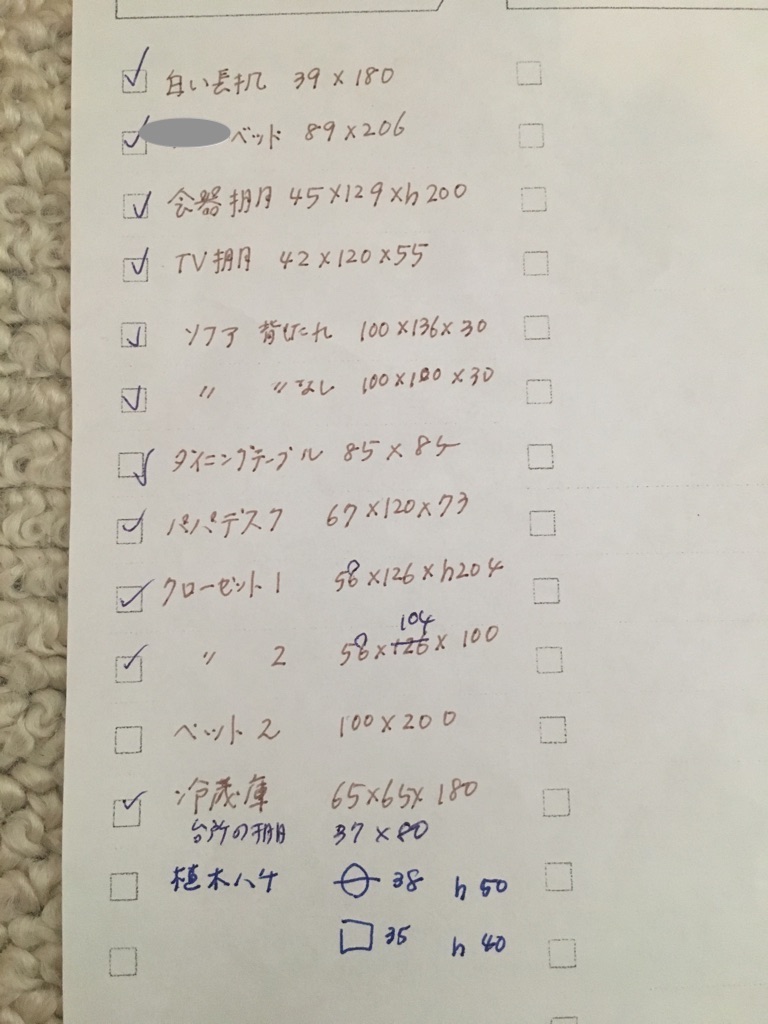 白い長机 39×180
ベッド 89×206
食器棚 45×129×h200
TV棚 42×120×55
ソファ 背もたれ 100×136×30
〃 〃なし 100×100×30
ダイニングテーブル 85×85
パパデスク 67×120×73
クローゼット1 58×126×h204
104
〃 2 58×126×100
ベット2 100×200
冷蔵庫 65×65×180
台所の棚 37×80
植木ハチ 38 h50
35 h40